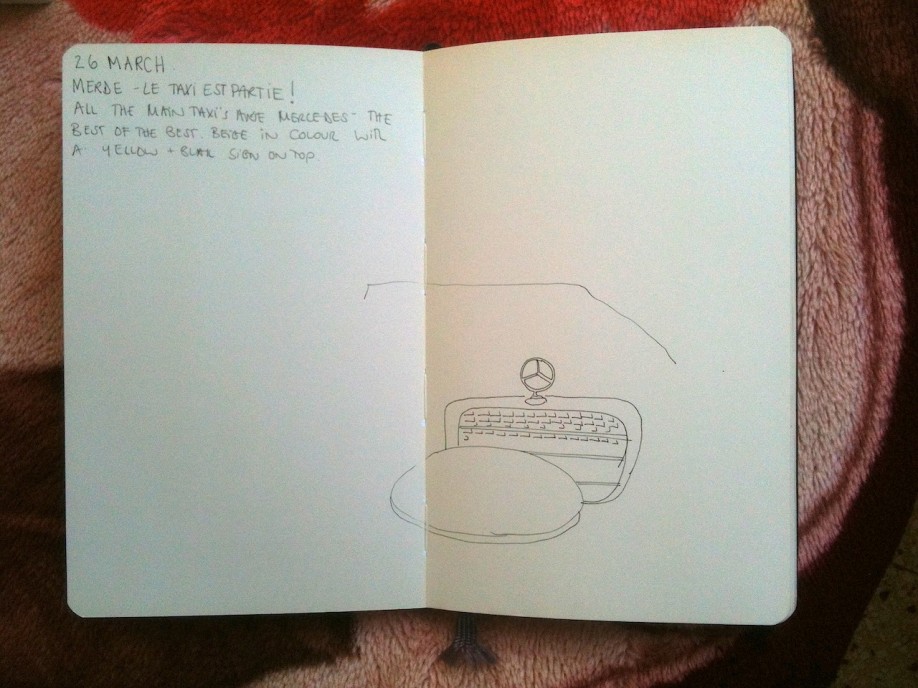 26 MARCH
MERDE - LE TAXI EST PARTIE!
ALL THE MAIN TAXI'S ARE MERCEDES - THE
BEST OF THE BEST. BEIGE IN COLOUR WITH
A YELLOW + BLACK SIGN ON TOP.